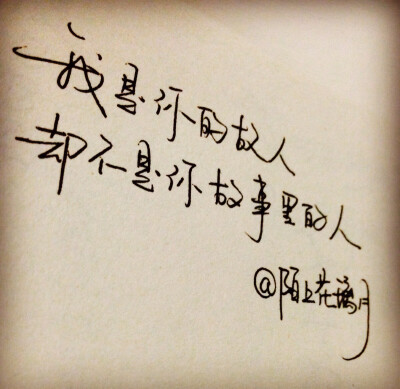 我是你的故人
却不是你故事里的人
@陌上花漓月